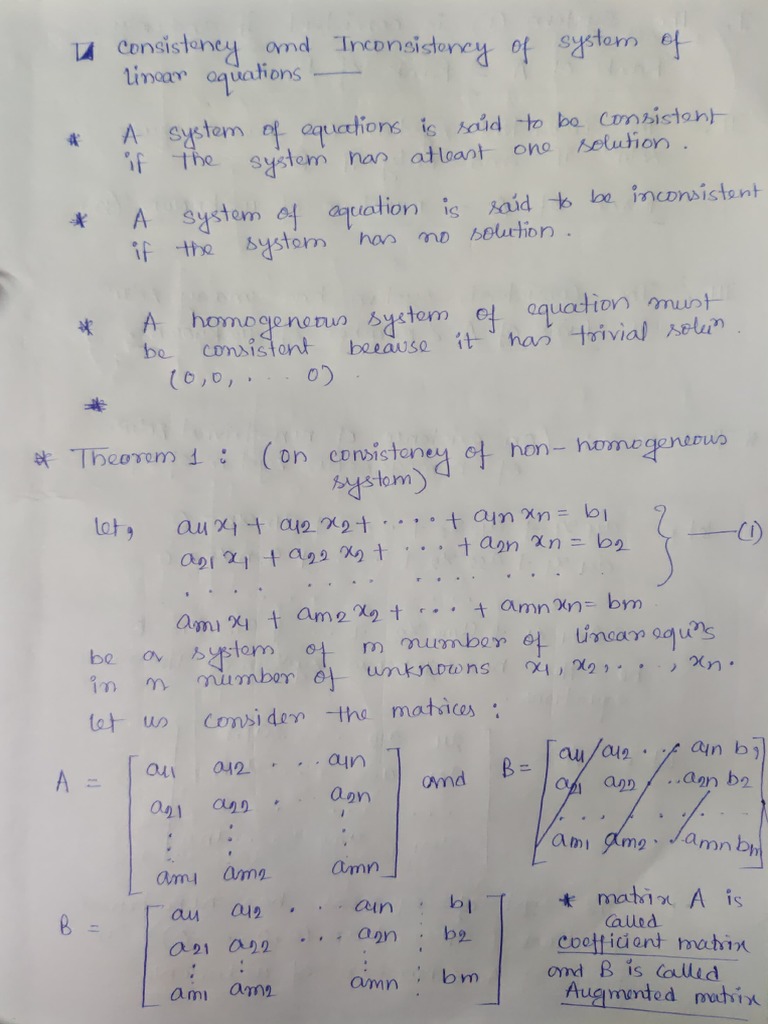 consistency and Inconsistency of system of
linear equations —
* A system of equations is said to be consistent
if the system has atleast one solution.
* A system of equation is said to be inconsistent
if the system has no solution.
* A homogeneous system of equation must
be consistent because it has trivial solun.
(0,0, . . . . 0)
*
* Theorem 1 : (on consistency of non-homogeneous
system)
let, a11 x1 + a12 x2 + . . . . + a1n xn = b1
a21 x1 + a22 x2 + . . . + a2n xn = b2 } —(1)
. . . . . . . . . . . . . . .
am1 x1 + am2 x2 + . . . + amn xn = bm
be a system of m number of linear equns
in n number of unknowns x1, x2, . . , xn.
let us consider the matrices :
A = [ a11 a12 . . . a1n
a21 a22 . a2n
⋮ ⋮ ⋮
am1 am2 amn ]
and
B = [ a11 a12 . . . a1n b1
a21 a22 . . a2n b2
. . . . . . . .
am1 am2 . . amn bm ]
B = [ a11 a12 . . . a1n : b1
a21 a22 . . . a2n : b2
⋮ ⋮ ⋮ :
am1 am2 amn : bm ]
* matrix A is
called
coefficient matrix
and B is called
Augmented matrix